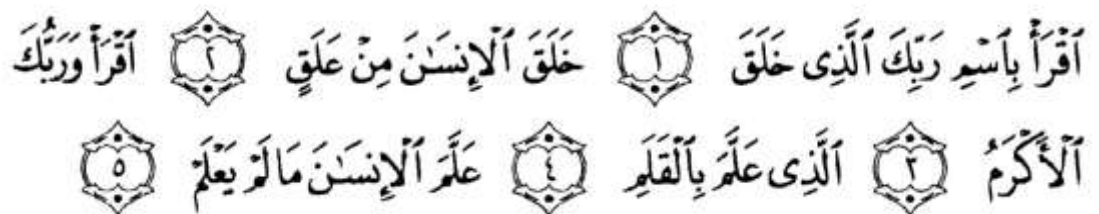 ٱقۡرَأۡ بِٱسۡمِ رَبِّكَ ٱلَّذِى خَلَقَ ١ خَلَقَ ٱلۡإِنسَـٰنَ مِنۡ عَلَقٍ ٢ ٱقۡرَأۡ وَرَبُّكَ
ٱلۡأَكۡرَمُ ٣ ٱلَّذِى عَلَّمَ بِٱلۡقَلَمِ ٤ عَلَّمَ ٱلۡإِنسَـٰنَ مَا لَمۡ يَعۡلَمۡ ٥